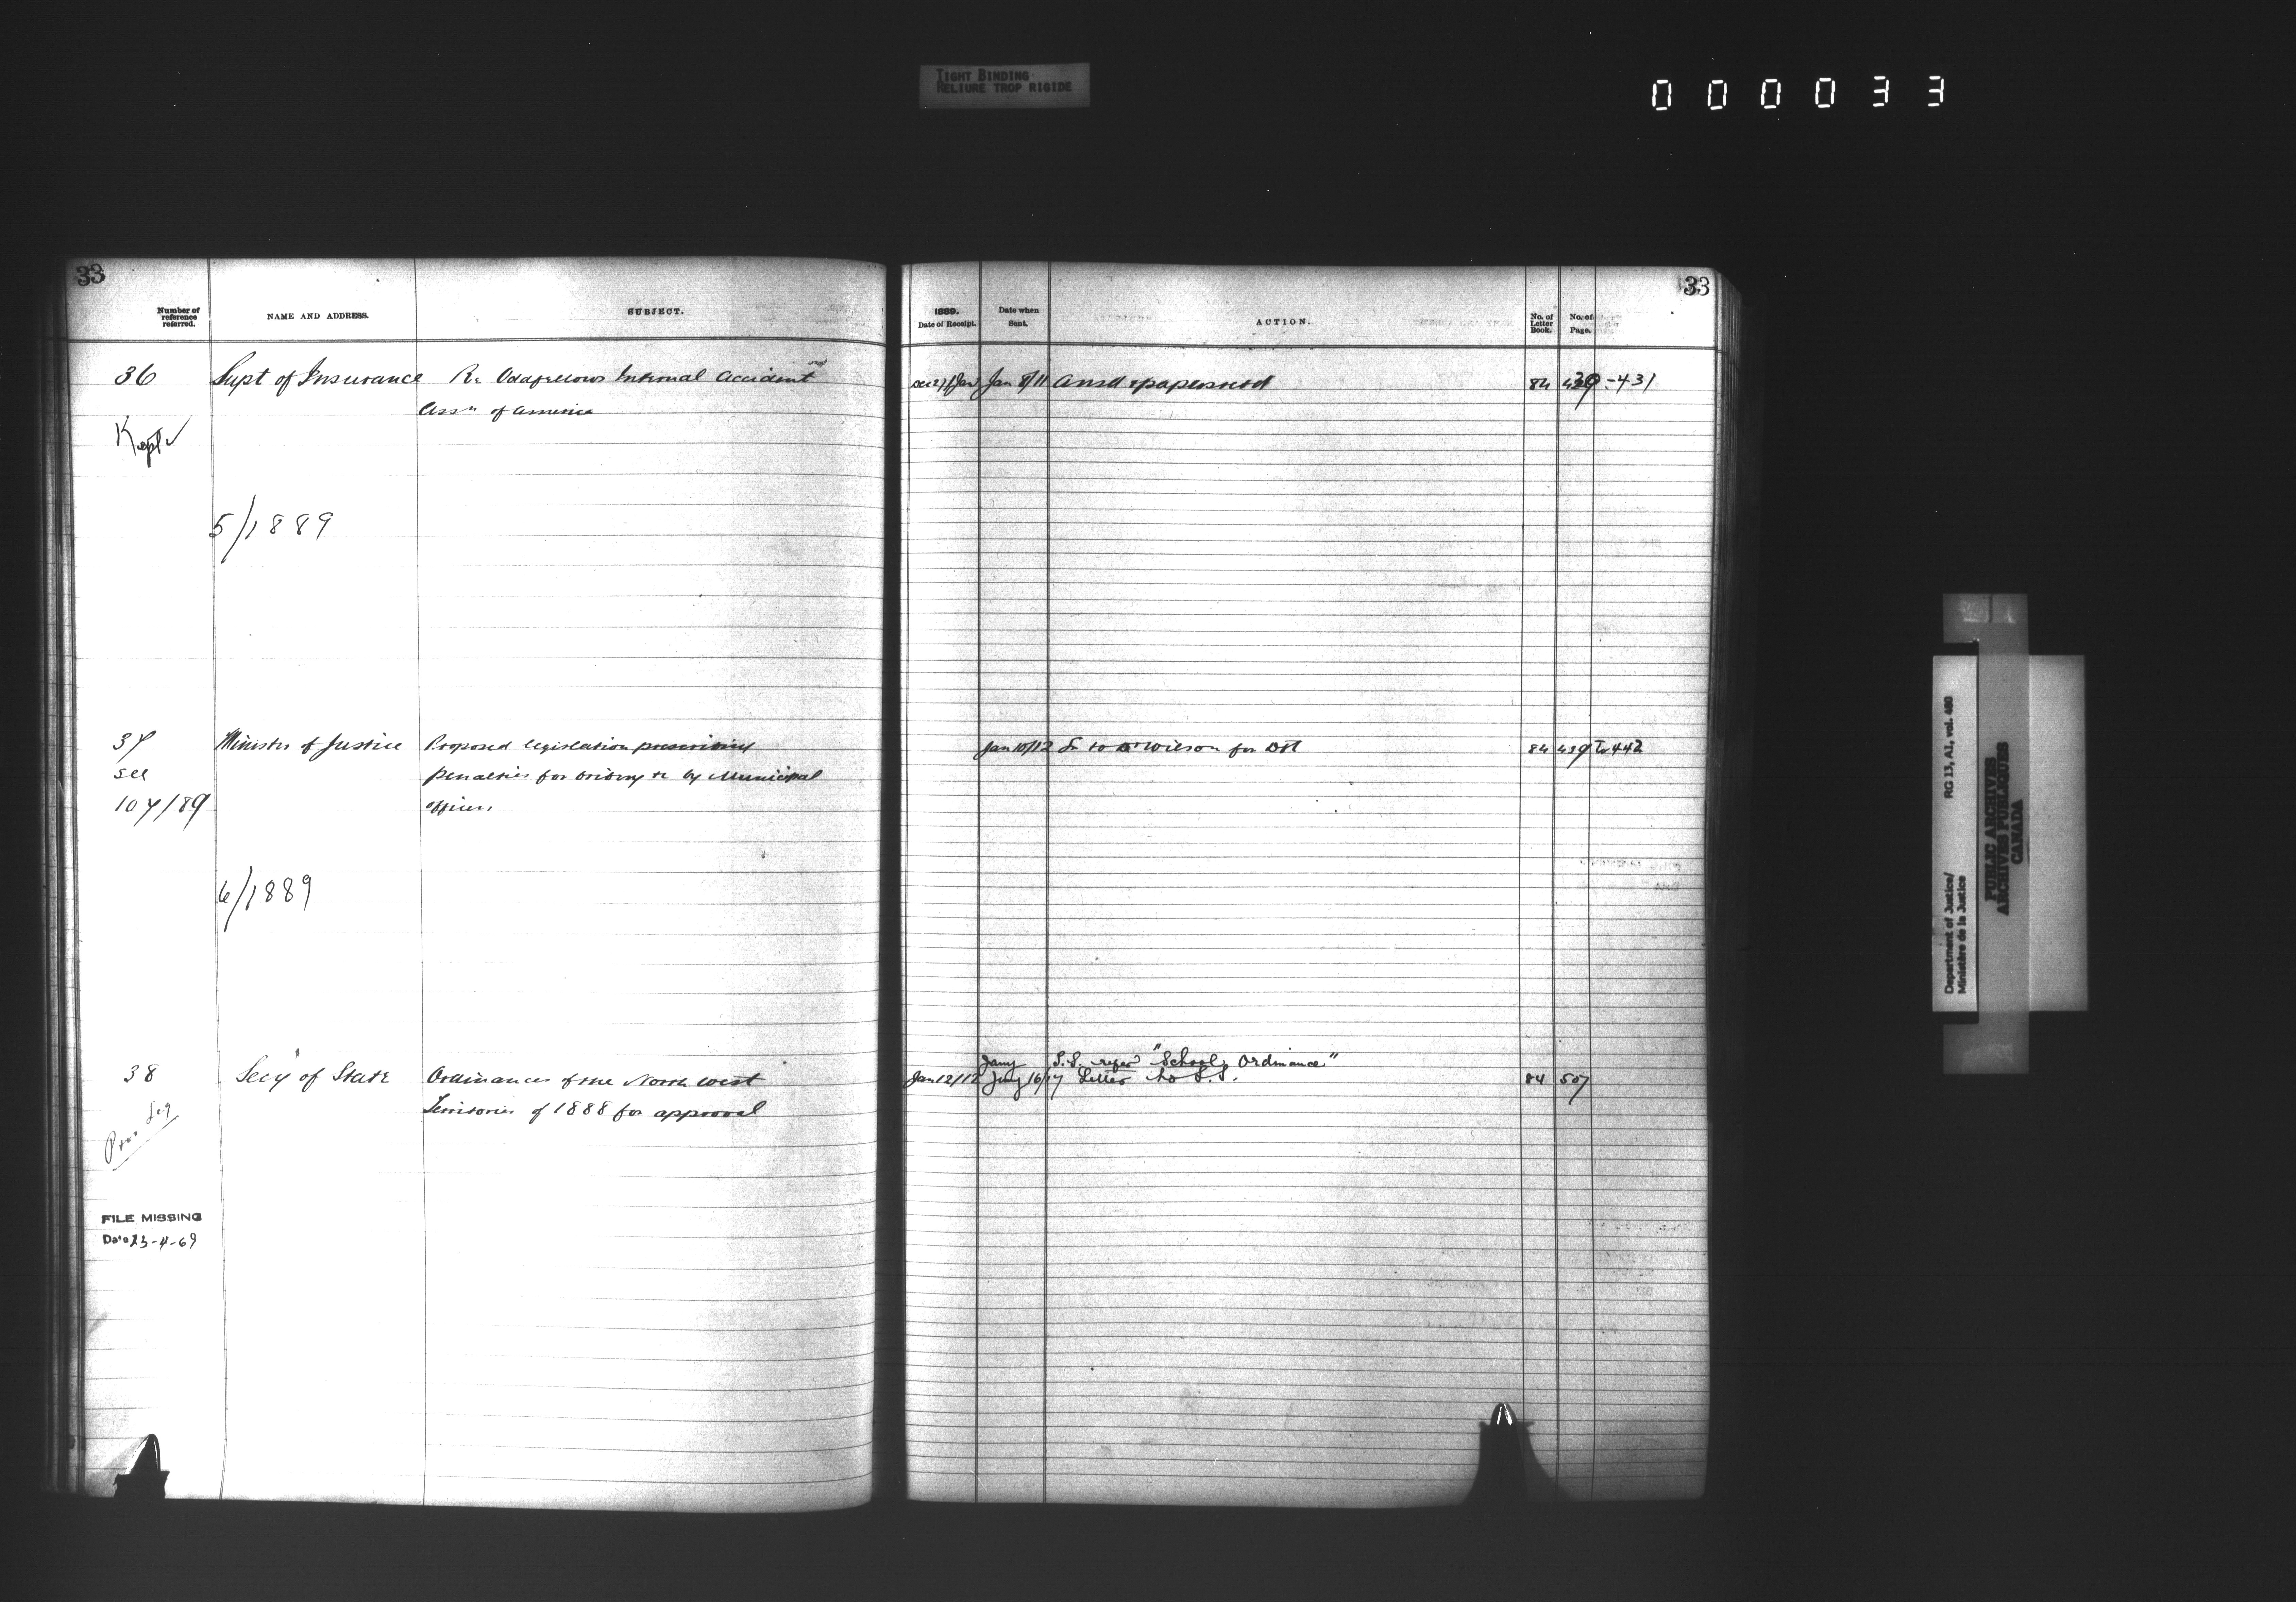 TIGHT BINDING
RELIURE TROP RIGIDE
000033
33
33
Number of reference referred.
NAME AND ADDRESS.
SUBJECT.
1889.
Date of Receipt.
Date when Sent.
ACTION.
No. of Letter Book.
No. of Page.
36 Supt of Insurance Re Oddfellows Internal Accident Jan 8/11 Ansd & papers retd 84 -431
Assn of America
Kept
5/1889
37 Minister of Justice Proposed legislation prescribing Jan 10/12 to Dr Wilson for 84 439 to 442
see penalties for bribery &c by Municipal
107/89 officers
6/1889
Jany S.S. "School Ordinance"
38 Secy of State Ordinances of the North West Jan 12/12 Jany 16/17 Letter to S.S. 84 507
Territories of 1888 for approval
Prov Leg
FILE MISSING
Date 23-4-69
Department of Justice/
Ministère de la Justice
RG 13, A1, vol. 460
PUBLIC ARCHIVES
ARCHIVES PUBLIQUES
CANADA